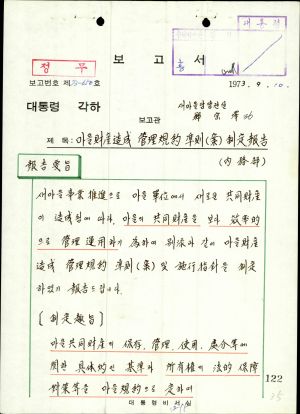 대통령
보고서
정무
보고번호 제73-650호
1973. 9. 10.
대통령 각하
새마을담당관실
보고관
제목: 마을財産造成 管理規約 準則(案) 制定報告
(内務部)
報告要旨
새마을事業推進으로 마을 單位에서 새로운 共同財産
이 造成됨에 따라, 마을의 共同財産을 보다 效率的
으로 管理運用하기 爲하여 別添과 같이 마을財産
造成 管理規約 準則(案) 및 施行指針을 制定
하였기 報告드립니다.
[制定趣旨]
마을共同財産의 保存, 管理, 使用, 處分等에
関한 具体的인 基準과 所有権의 法的 保障
対策等을 마을規約으로 定하여
122
대통령비서실